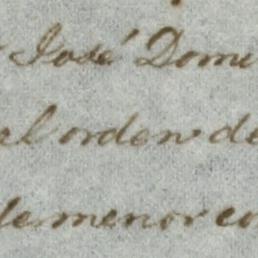 José Domi
al orden de
de menor co